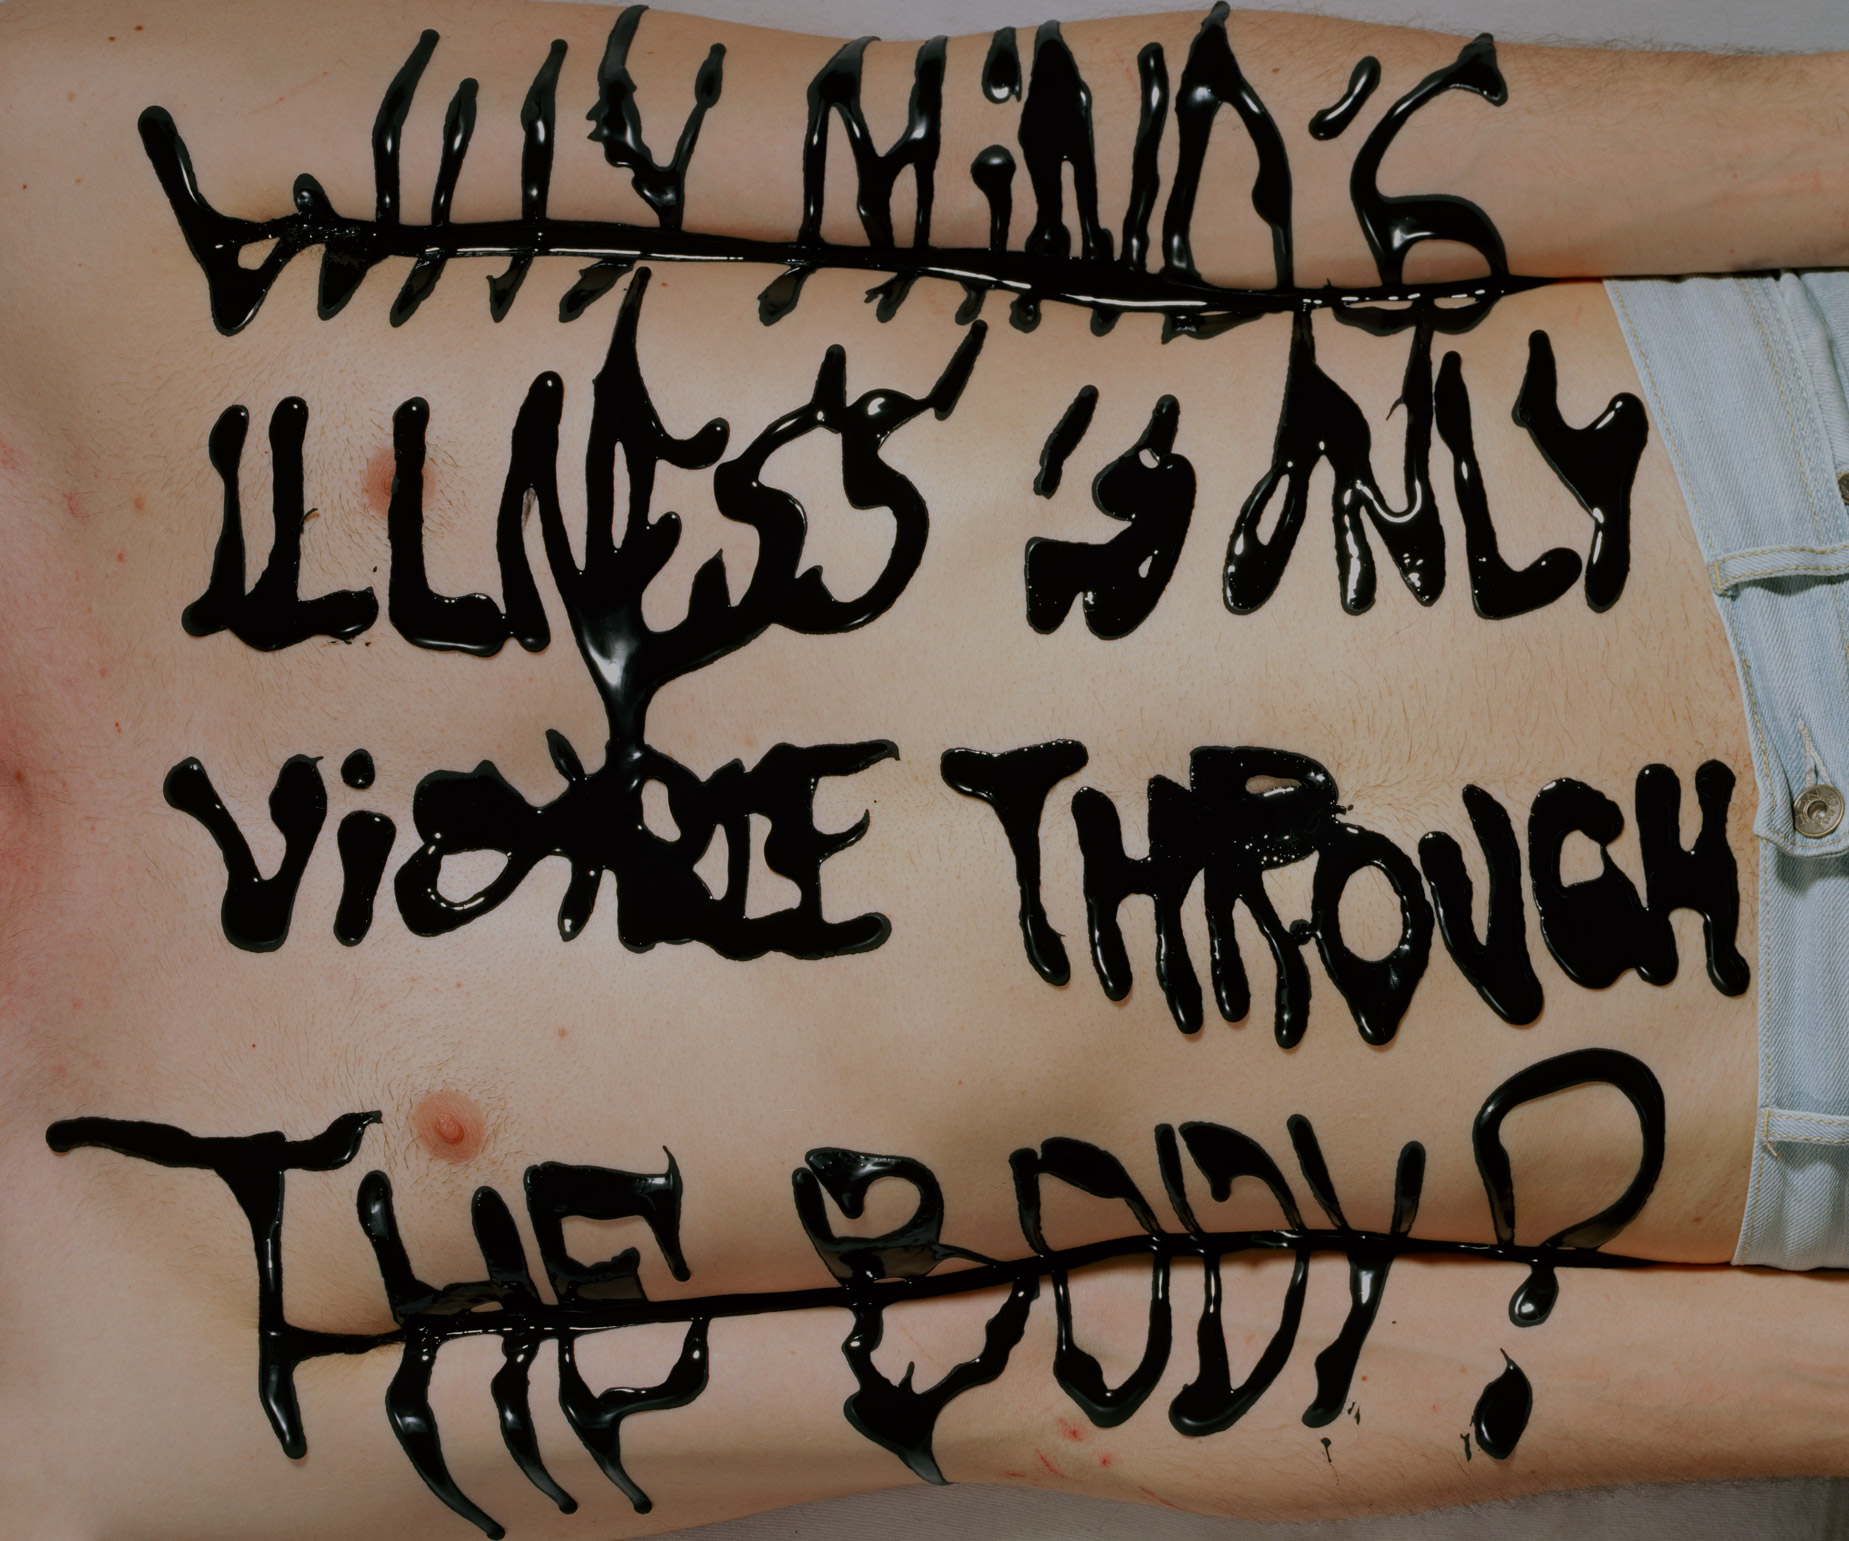 WHY MiND'S
ILLNESS iS ONLY
ViSIBLE THROUGH
THE BODY?